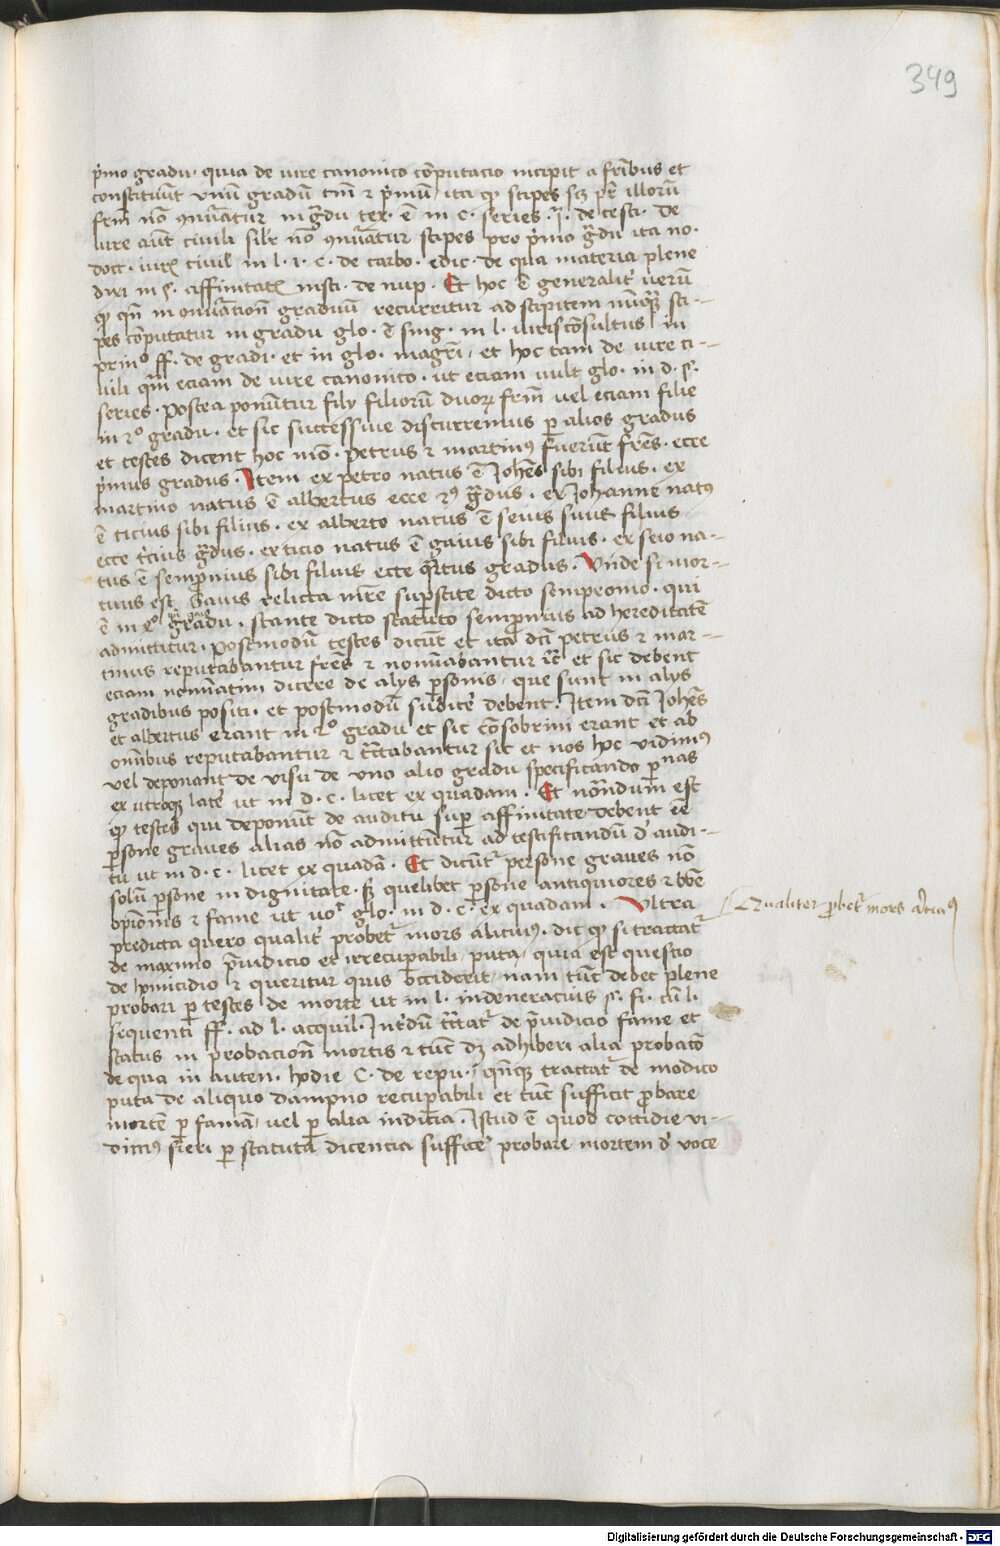 349
p̄mo gradu · quia de iure canonico cōputacio incipit a fr̄ibus et
constituūt vnū gradū tm̄ ⁊ p̄mū / ita ꝙ stipes scꝫ pr̄ illorū
frm̄ nō ꝯnūatur in g̃du tex · ē in c · series · j · de testi · de
iure aūt ciuili silr̄ nō ꝯnūatur stipes pro p̄mo g̃du ita no ·
doct · iurꝭ ciuil̄ in l · 1 · c · de carbo · edic · de qua materia plene
dixi in §. affinitatꝭ insti · de nup · Et hoc ē generalit̄ uerū
ꝙ qn̄ in ꝯnūacion̄ graduū recurritur ad stipitem nūqꝫ sti-
pes cōputatur in gradu glo · ē sing · in l · iurisconsultus in
prinᵒ ff · de gradi · et in glo · magr̄i / et hoc tam de iure ci-
uili qm̄ eciam de iure canonico · ut eciam uult glo · in d · §.
series · Postea ponūtur filij filiorū duorꝝ frm̄ uel eciam filie
in 2ᵒ gradu · et sic successiue discurremus ꝑ alios gradus
et testes dicent hoc mō · petrus ⁊ martinꝰ fuerūt fr̄es · ecce
p̄mus gradus · Item ex petro natus ē Joh̄es sibi filius · ex
martino natus ē albertus ecce 2ꝰ g̃dus · ex Johanne natꝰ
ē ticius sibi filius · ex alberto natus ē seius suus filius
ecce t̄cius g̃dus · ex ticio natus ē gaius sibi filius · ex seio na-
tus ē sempronius sibi filius ecce q̄rtus gradus · Vnde si mor-
tuus est Gaius relicta mr̄e suꝑstite dicto sempronio · qui
ē in 4ᵒ gradu · stante dicto statuto sempronius ad hereditatē
admittitur · postmodū testes dicūt et ita dc̄i petrus ⁊ mar-
tinus reputabantur fr̄es ⁊ noīnabantur et sic debent
eciam noīnatim dicere de alijs ꝑsonis / que sunt in alijs
gradibus positi · et postmodū subicē debent · Item dc̄i Joh̄es
et albertus erant in 2ᵒ gradu et sic cōsobrini erant et ab
om̄ibus reputabantur ⁊ tr̄tabantur sic et nos hec vidimꝰ
vel deponant de visu de vno alio gradu specificando ꝑsonas
ex utroqꝫ late ut in d · c · licet ex quadam · Et nōndum est
ꝙ testes qui deponūt de auditu suꝑ affinitate debent ēē
ꝑsone graues alias nō admittūtur ad testificandū d̄ audi-
tu ut in d · c · licet ex quadā · Et dicūtur persone graues nō
solū ꝑsone in dignitate · sꝫ quelibet ꝑsone antiquiores ⁊ bōe
opinionis ⁊ fame ut uoᵗ glo · in d · c · ex quadam · Vltra
predicta quero qualit̄ probet᷑ mors alicuiꝰ · dic ꝙ si tractat᷑
de maximo p̄iudicio et irrecuꝑabili / puta / quia est questio
de homicidio ⁊ queritur quis occiderit / nam tūc debet plene
probari ꝑ testes de morte ut in l · indeneracius §. fi · cū l ·
sequenti ff · ad l · acquil · Int̄dū tr̄tat᷑ de p̄iudicio fame et
status in probacion̄ mortis ⁊ tūc dꝫ adhiberi alia probatō
de qua in auten · hodie C · de repu · / qn̄qꝫ tractat᷑ de modico
puta de aliquo dampno recuꝑabili et tūc sufficit probare
mortē ꝑ famā / uel ꝑ alia indicia · Istud ē quod cottidie vi-
dimꝰ fieri ꝑ statuta dicencia sufficē probare mortem d̄ voce
Qualiter ꝓbet᷑ mors alicuiꝰ
Digitalisierung gefördert durch die Deutsche Forschungsgemeinschaft - DFG